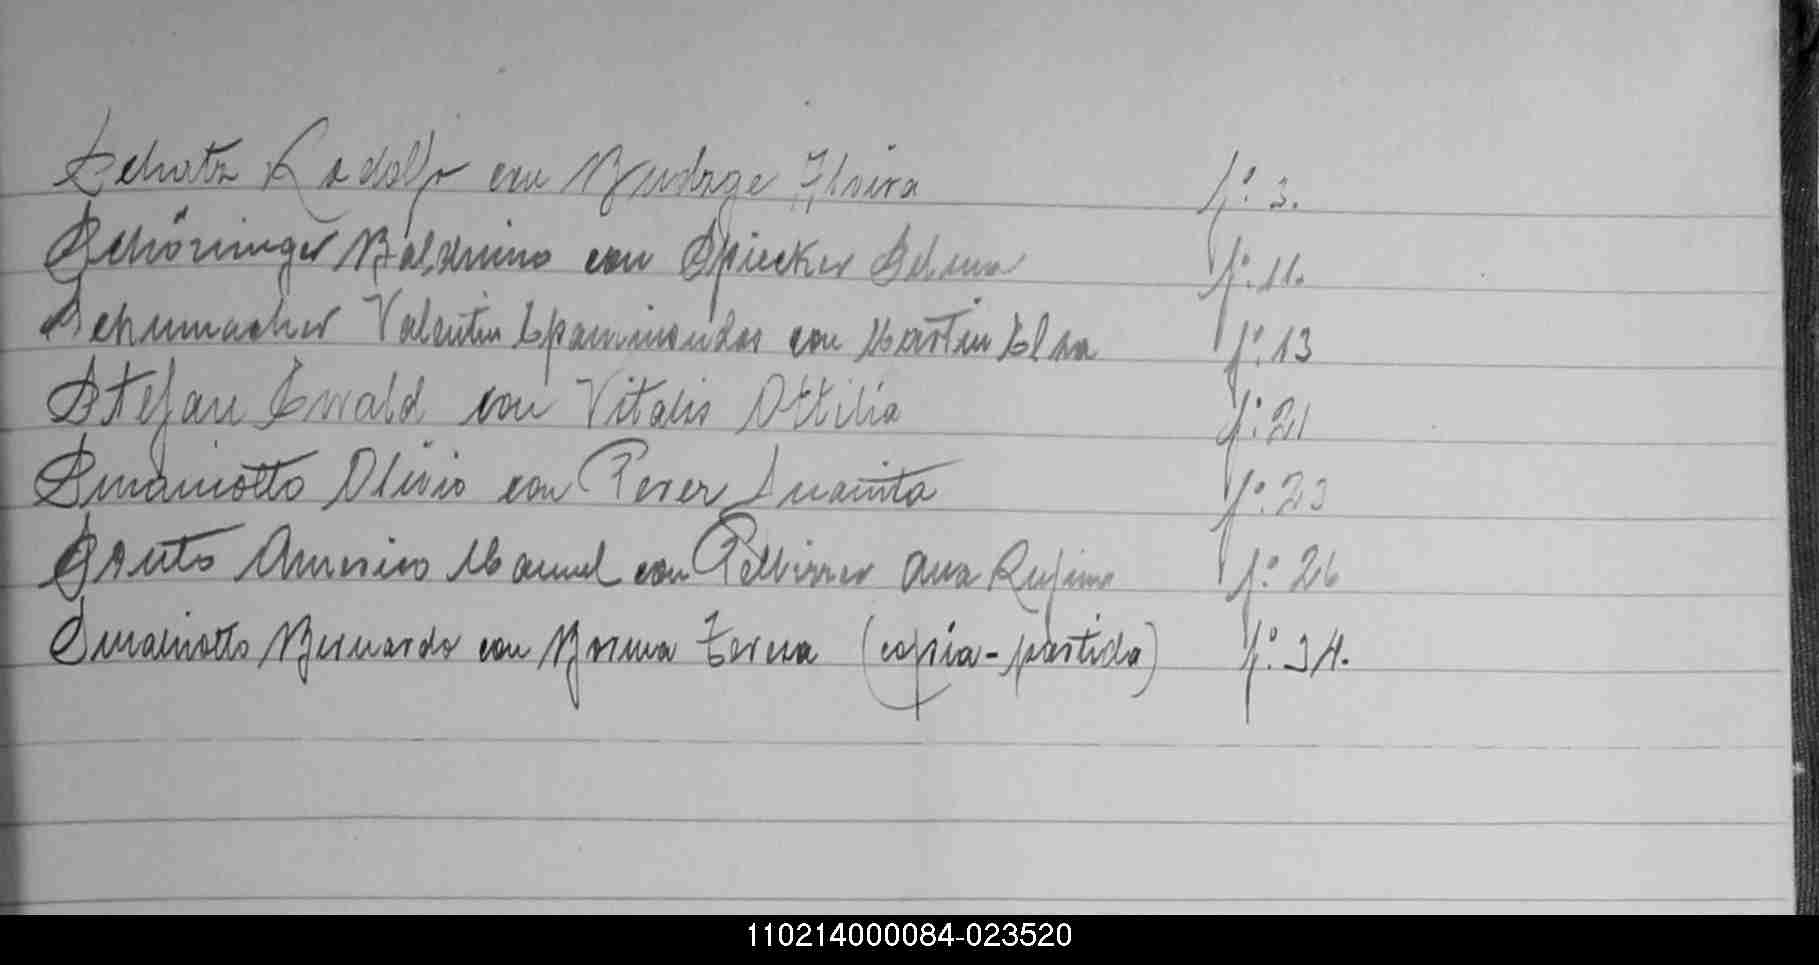 Schatz Rodolfo con Brudzge Elvira fº: 3.
Schöringer Balduino con Spiecker Selma fº: 11.
Schumacher Valentin Epaminondas con Martin Elsa fº: 13
Stefan Ewald con Vitalis Ottilia fº: 21
Smaniotto Olivio con Perer Juanita fº: 23
Souto Americo Manuel con Pellizzer Ana Rufina fº: 26
Smaniotto Bernardo con Borma Teresa (copia-partida) fº: 34.
110214000084-023520